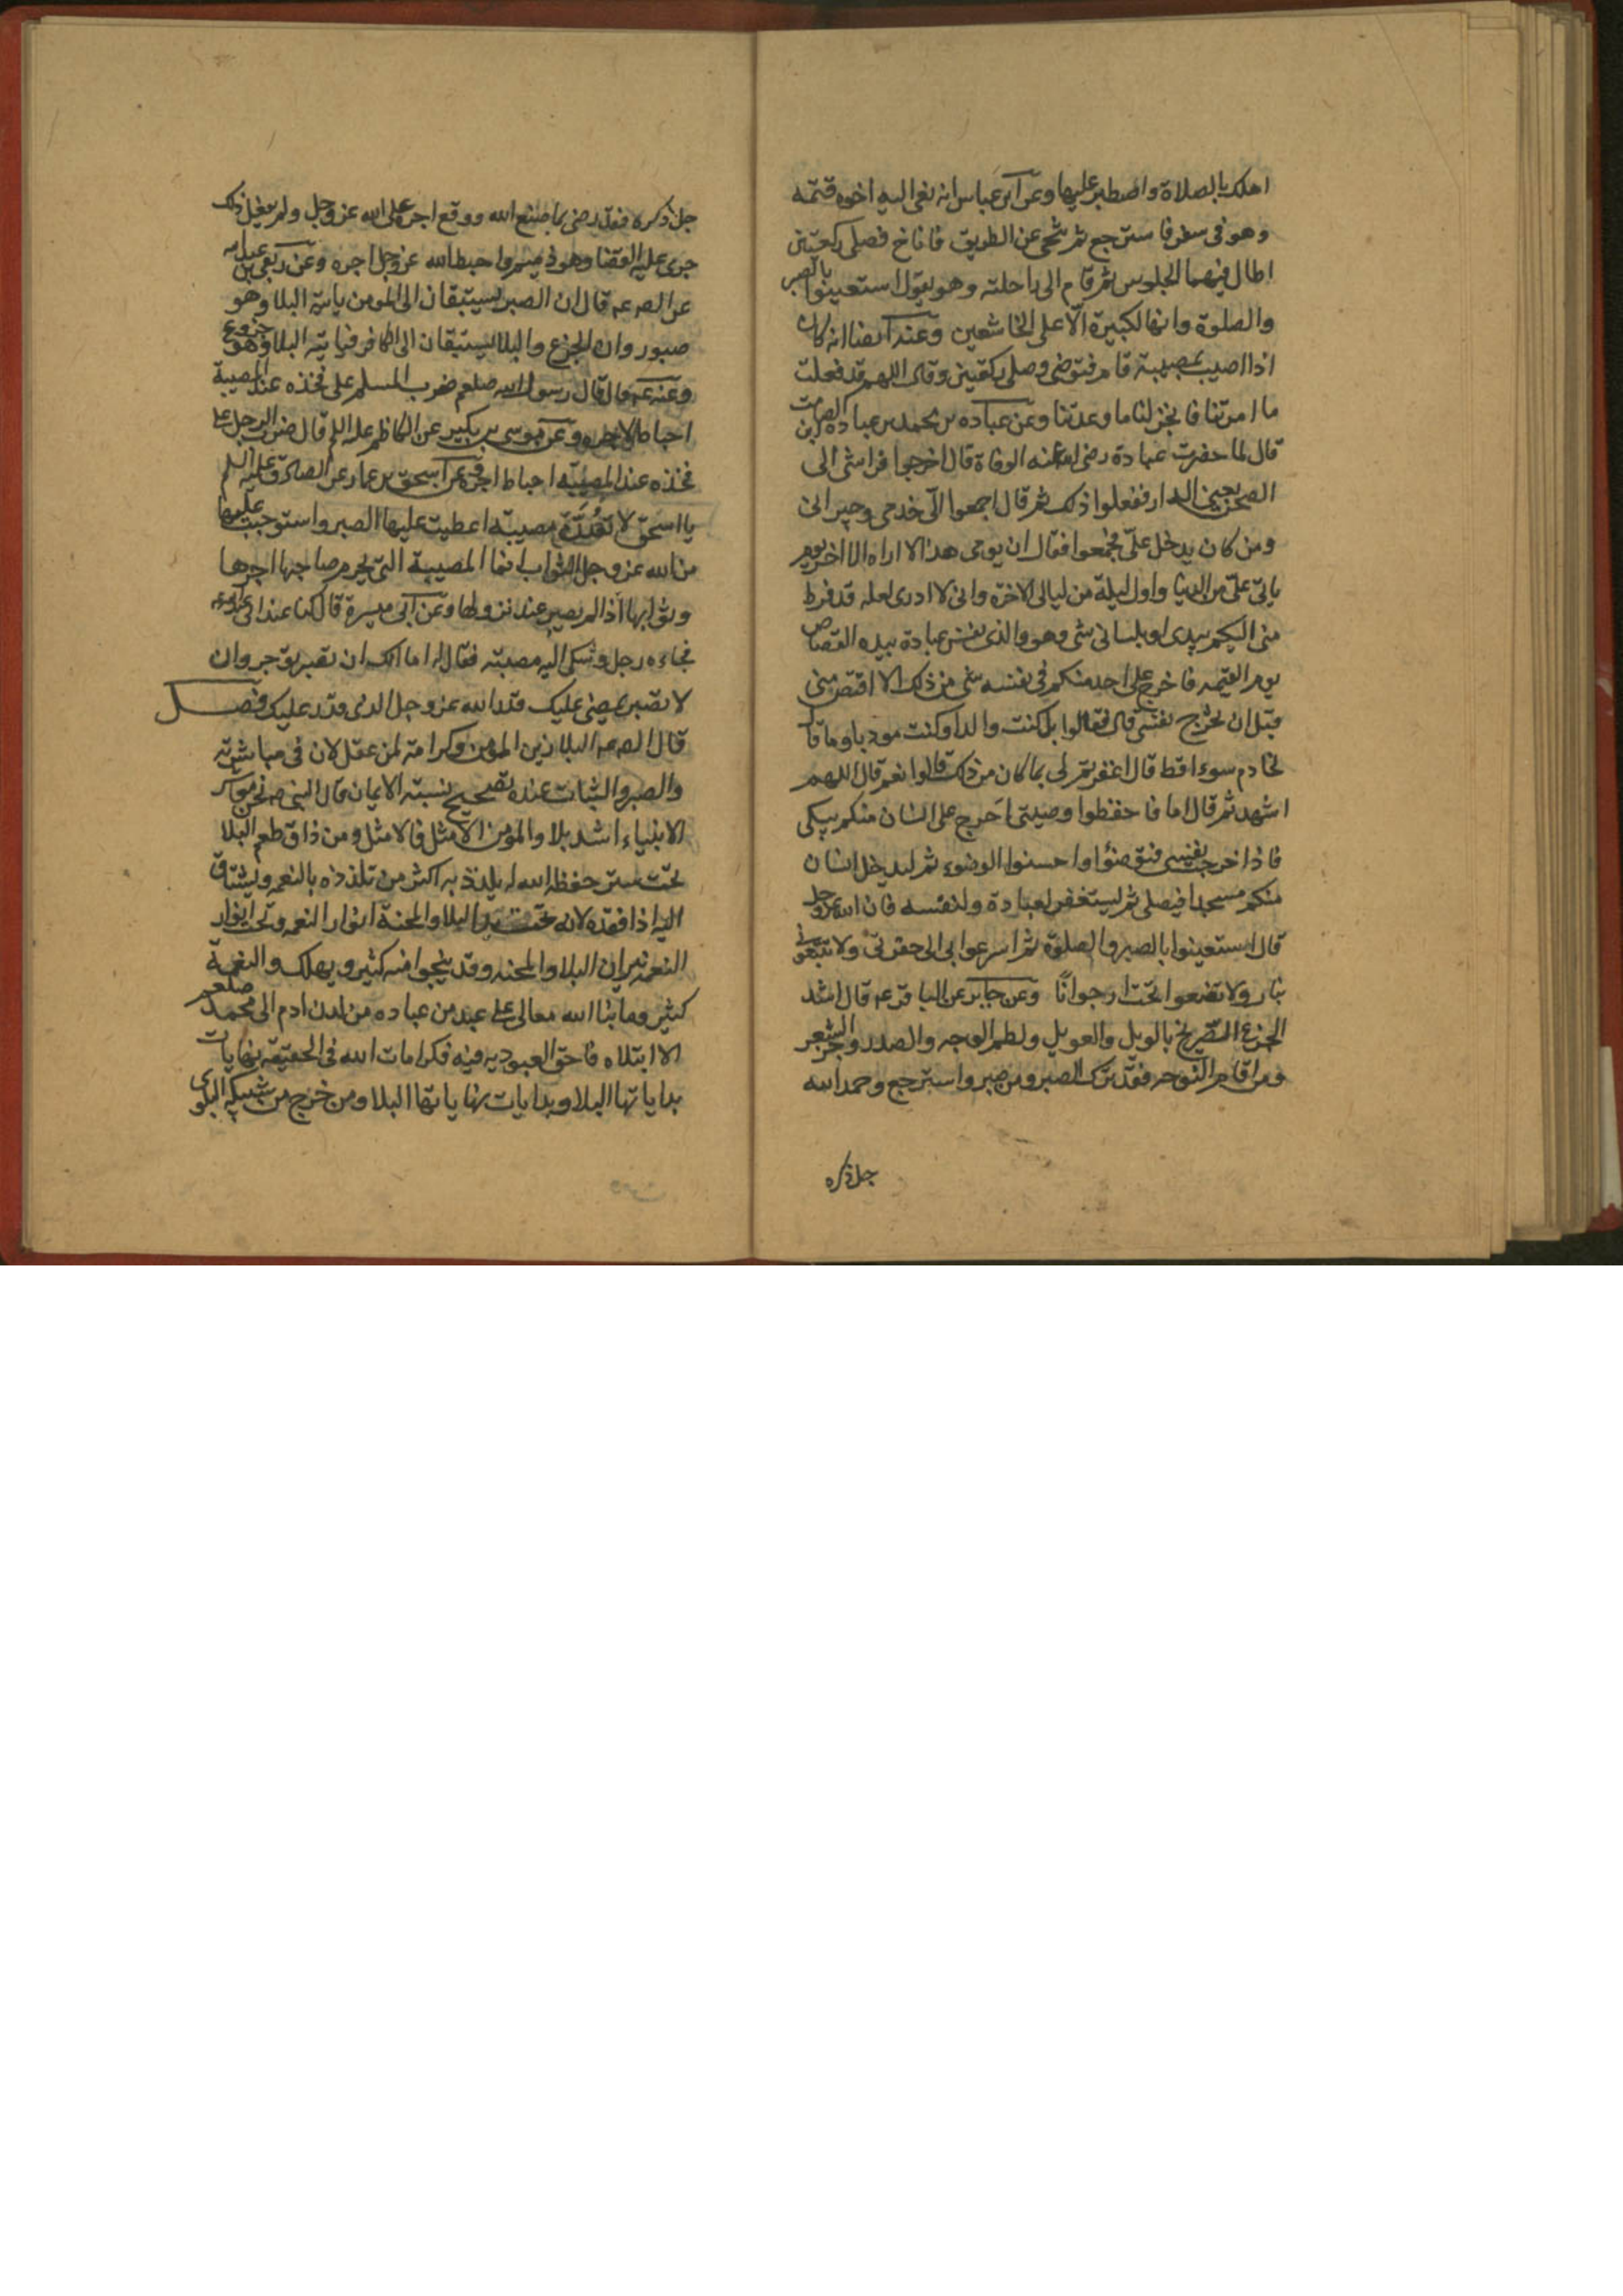 اهلك بالصلاة واصطبر عليها وعن ابن عباس انه نعى اليه اخوه قثمه
وهو فى سفر فاسترجع ثم تنحى عن الطريق فاناخ فصلى ركعتين
اطال فيهما الجلوس ثم قام الى راحلته وهو يقول استعينوا بالصبر
والصلوة وانها لكبيرة الا على الخاشعين وعنه ايضا انه كان
اذا اصيب بمصيبة قام فتوضى وصلى ركعتين وقال اللهم قد فعلت
ما امرتنا فانجز لنا ما وعدتنا وعن عباده بن محمد بن عباده بن الصامت
قال لما حضرت عبادة رضى الله عنه الوفاة قال اخرجوا فراشى الى
الصحن يعنى الدار ففعلوا ذلك ثم قال اجمعوا الى خدمى وجيرانى
ومن كان يدخل على فجمعوا فقال ان يومى هذا لا اراه الا اخر يوم
ياتى على من الدنيا واول ليلة من ليالى الاخرة وانى لا ادرى لعله قد فرط
منى اليكم بيدى او بلسانى شى وهو والذى نفس عبادة بيده القصاص
يوم القيمه فاخرج على احد منكم فى نفسه شى من ذلك الا اقتص منى
قبل ان تخرج نفسى قال فقالوا بل كنت والدا وكنت مودبا وما قال
لخادم سوءا قط قال اغفرتم لى بما كان من ذلك قالوا نعم قال اللهم
اشهد ثم قال اما فاحفظوا وصيتى احرج على انسان منكم يبكى
فاذا خرجت نفسى فتوضئوا واحسنوا الوضوء ثم ليدخل انسان
منكم مسجدا فيصلى ثم ليستغفر لعبادة ولنفسه فان الله عز وجل
قال استعينوا بالصبر والصلوة ثم اسرعوا بى الى حفرتى ولا تتبعونى
بنار ولا تضعوا تحتى ارجوانا وعن جابر عن الباقر ع قال اشد
الجزع الصريخ بالويل والعويل ولطم الوجه والصدر وجز الشعر
ومن اقام النوحه فقد ترك الصبر ومن صبر واسترجع وحمد الله
جل ذكره
جل ذكره فقد رضى بما صنع الله ووقع اجره على الله عز وجل ولم يفعل ذلك
جرى عليه القضا وهو ذميم واحبط الله عز وجل اجره وعن ربعى بن عبد الله
عن الص ع قال ان الصبر يستبقان الى المومن ياتيه البلا وهو
صبور وان الجزع والبلا يستبقان الى الكافر فياتيه البلا وهو جزوع
وعنه ع قال قال رسول الله صلعم ضرب المسلم على فخذه عند المصيبة
احباط لاجره وعن موسى بن بكير عن الكاظم عليه السلم قال ضرب الرجل على
فخذه عند المصيبه احباط اجره وعن اسحق بن عمار عن الصادق عليه السلم
يا اسحق لا تعدن مصيبة اعطيت عليها الصبر واستوجبت عليها
من الله عز وجل الثواب انما المصيبة التى يحرم صاحبها اجرها
وثوابها اذا لم يصبر عند نزولها وعن ابى ميسرة قال كنا عند ابى عبد الله ع
فجاءه رجل وشكى اليه مصيبته فقال له اما انك ان تصبر توجر وان
لا تصبر يمضى عليك قدر الله عز وجل الذى قدر عليك فصل
قال الص ع البلا زين المومن وكرامة لمن عقل لان فى مباشرته
والصبر والثبات عنده تصحيح نسبة الايمان قال النبى ص نحن معاشر
الانبياء اشد بلا والمؤمن الامثل فالامثل ومن ذاق طعم البلا
تحت ستر حفظ الله له تلذذ به اكثر من تلذذه بالنعم ويشتاق
اليه اذا فقده لانه تحت البلا والمحنة انوار النعم وتحت انوار
النعم نيران البلا والمحنه وقد ينجوا منه كثير ويهلك والنعمة
كثير وما بنا الله تعالى على عبد من عباده من لدن ادم الى محمد صلعم
الا ابتلاه فاحق العبوديه فيه فكرامات الله فى الحقيقه نهايات
بداياتها البلا وبدايات نهاياتها البلا ومن خرج من شبيكة البلوى